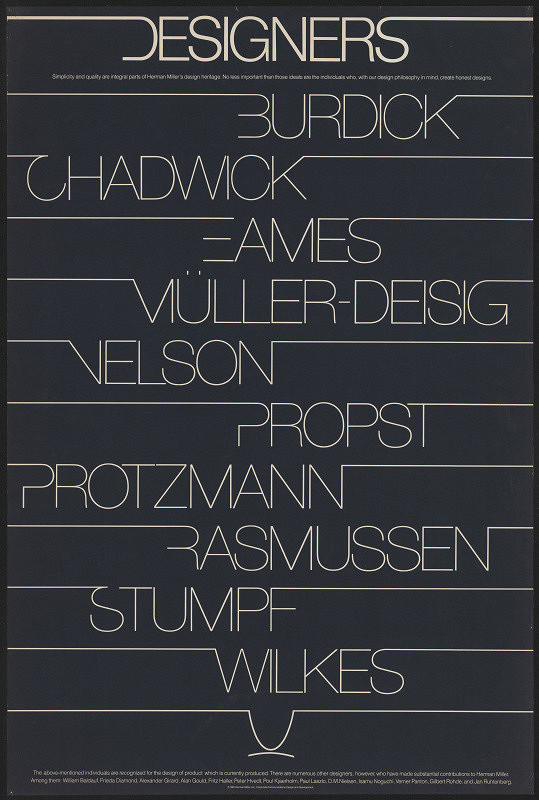 DESIGNERS
Simplicity and quality are integral parts of Herman Miller's design heritage. No less important than those ideals are the individuals who, with our design philosophy in mind, create honest designs.
BURDICK
CHADWICK
EAMES
MÜLLER-DEISIG
NELSON
PROPST
PROTZMANN
RASMUSSEN
STUMPF
WILKES
The above-mentioned individuals are recognized for the design of product which is currently produced. There are numerous other designers, however, who have made substantial contributions to Herman Miller.
Among them: William Baldauf, Frieda Diamond, Alexander Girard, Alan Gould, Fritz Haller, Peter Hvidt, Poul Kjaerholm, Paul Laszlo, O.M. Nielsen, Isamu Noguchi, Verner Panton, Gilbert Rohde, and Jan Ruhtenberg.